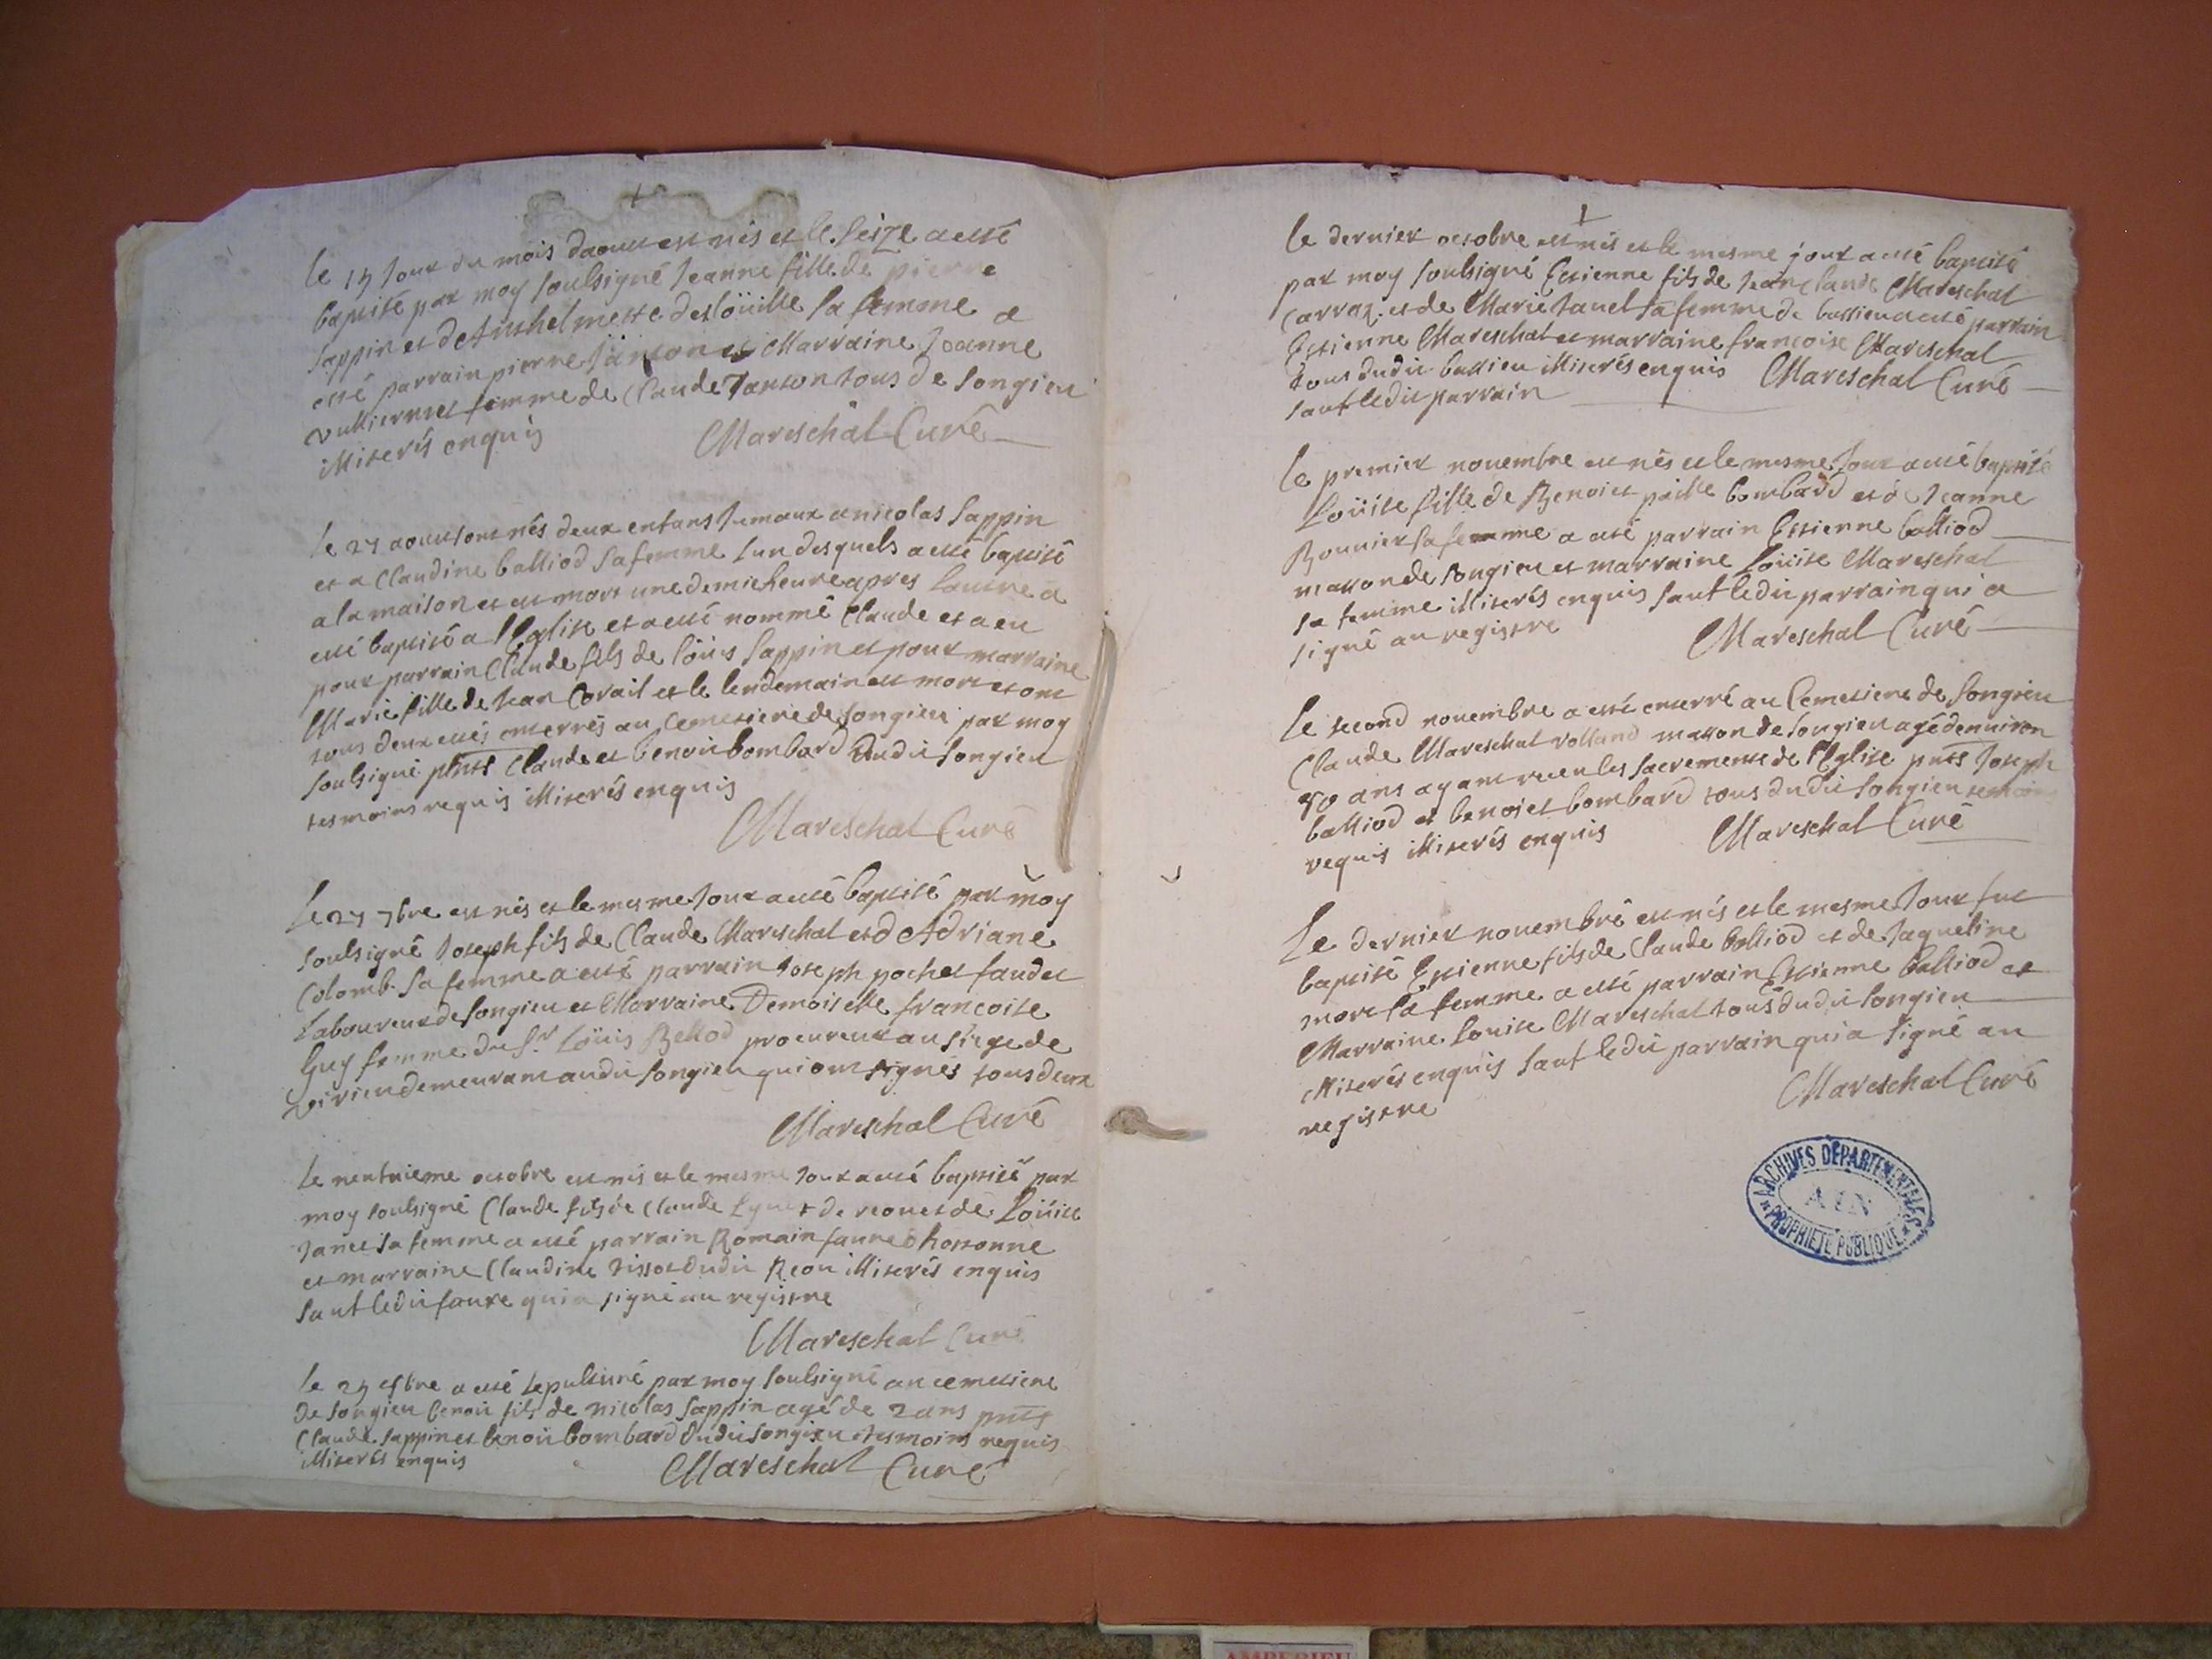 Le 15 Jour du mois daoust est nés et le seize a esté
baptisé par moy soulsigné Jeanne fille de pierre
sappin et d'Anthelmette deslöuille sa femme a
esté parrain pierre Janton et Marraine Jeanne
vulliermet femme de Claude Janton tous de Songieu
illiterés enquis
Mareschal Curé
Le 27 aoust sont nés deux enfans Jumaux a nicolas Sappin
et a Claudine balliod sa femme lun desquels a esté baptisé
a la maison et est mort une demie heure apres lautre a
esté baptisé a l'Eglise et a esté nommé Claude et a eu
pour parrain Claude fils de löuis Sappin et pour marraine
Marie fille de Jean Corail et le lendemain est mort et ont
tous deux estés enterrés au Cemetiere de Songieu par moy
soulsigné pnts Claude et benoit bombard dudit Songieu
tesmoins requis illiterés enquis
Mareschal Curé
Le 27 7bre est nés et le mesme Jour a esté baptisé par moy
soulsigné Joseph fils de Claude Mareschal et d'Adriane
Colomb sa femme a esté parrain Joseph pochet faudet
Laboureur de Songieu et Marraine Demoiselle francoise
Guy femme du Sr Löuis Bellod procureur au siege de
virieu demeurant audit Songieu qui ont signés tous deux
Mareschal Curé
Le neufuieme octobre est nés et le mesme Jour a esté baptisé par
moy soulsigné Claude fils de Claude de reou et de Löuise
Janet sa femme a esté parrain Romain faure d'hostonne
et marraine Claudine tissot dudit Reou illiterés enquis
sauf ledit faure qui a signé au registre
Mareschal Curé
Le 25 a esté sepulturé par moy soulsigné au cemetiere
de Songieu benoit fils de nicolas Sappin agé de 2 ans pnts
Claude sappin et benoit bombard dudit Songieu tesmoins requis
illiterés enquis
Mareschal Curé
Le dernier octobre est nés et le mesme jour a esté baptisé
par moy soulsigné Estienne fils de Jean claude Mareschal
Carraz et de Marie Janet sa femme de bassieu a esté parrain
Estienne Mareschal et marraine francoise Mareschal
tous dudit bassieu illiterés enquis
Mareschal Curé
sauf ledit parrain
Le premier nouembre est nés et le mesme Jour a esté baptisé
Löuise fille de Benoit paille bombard et de Jeanne
Bounier sa femme a esté parrain Estienne balliod
masson de Songieu et marraine Löuise Mareschal
sa femme illiterés enquis sauf ledit parrain qui a
signé au registre
Mareschal Curé
Le second nouembre a esté enterré au Cemetiere de Songieu
Claude Mareschal volland masson de Songieu agé denuiron
50 ans ayant receu les sacrements de l'Eglise pnts Joseph
balliod et benoit bombard tous dudit Songieu tesmoins
requis illiterés enquis
Mareschal Curé
Le dernier nouembre est nés et le mesme Jour fut
baptisé Estienne fils de Claude balliod et de Jaqueline
more sa femme a esté parrain Estienne balliod et
Marraine Louise Mareschal tous dudit Songieu
illiterés enquis sauf ledit parrain qui a signé au
registre
Mareschal Curé
ARCHIVES DÉPARTEMENTALES
AIN
PROPRIÉTÉ PUBLIQUE